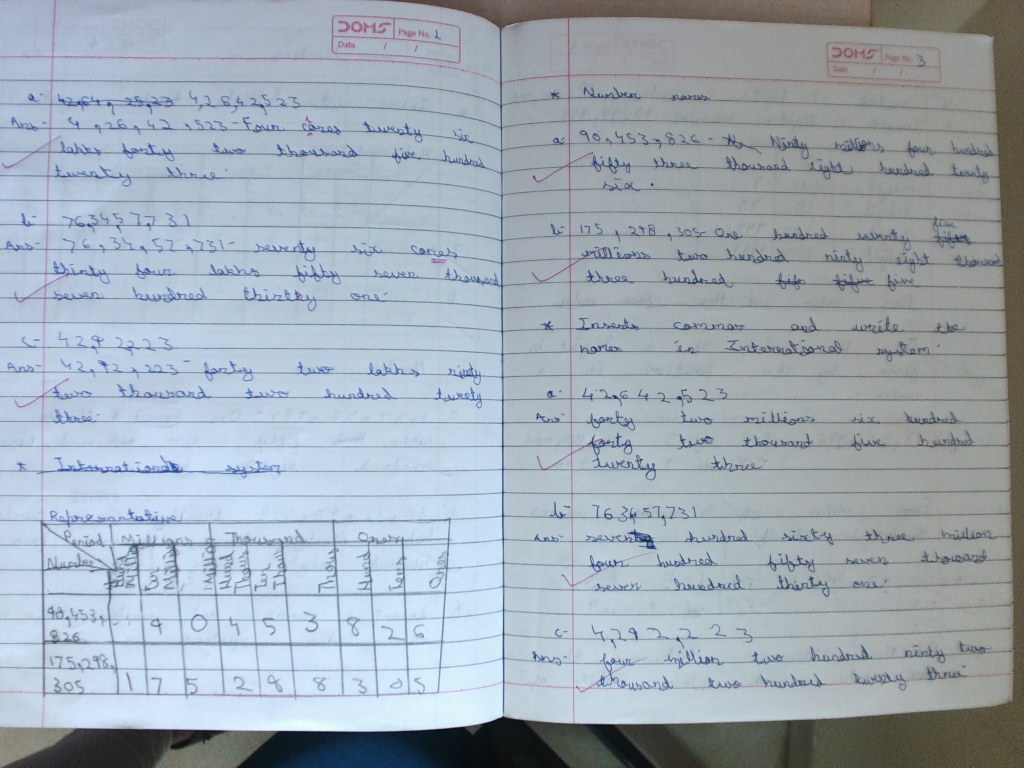 DOMS Page No. 2
Date / /
a- 42,64, 25,23 4,26,42,523
Ans- 4,26,42,523- Four cores twenty six
lakhs forty two thousand five hundred
twenty three.
b- 76,345,7,731
Ans- 76,34,57,731- seventy six cores
thirty four lakhs fifty seven thousand
seven hundred thirty one.
c- 42,92,223
Ans- 42,92,223- forty two lakhs ninty
two thousand two hundred twenty
three.
* International system
Representative
Period Millions Thousand Ones
Number Hund Milli Ten Milli Million Hund Thous Ten Thou Thous Hund Tens Ones
90,453, 9 0 4 5 3 8 2 6
826
175,298,
305 1 7 5 2 9 8 3 0 5
DOMS Page No. 3
Date / /
* Number names
a- 90,453,826- Ninty millions four hundred
fifty three thousand eight hundred twenty
six.
b- 175,298,305- One hundred seventy five
millions two hundred ninty eight thousand
three hundred five
* Inserts commas and write the
names in International system.
a- 42,642,523
Ans- forty two millions six hundred
forty two thousand five hundred
twenty three.
b- 763457,731
Ans- seven hundred sixty three million
four hundred fifty seven thousand
seven hundred thirty one.
c- 4,292,223
Ans- four million two hundred ninty two
thousand two hundred twenty three